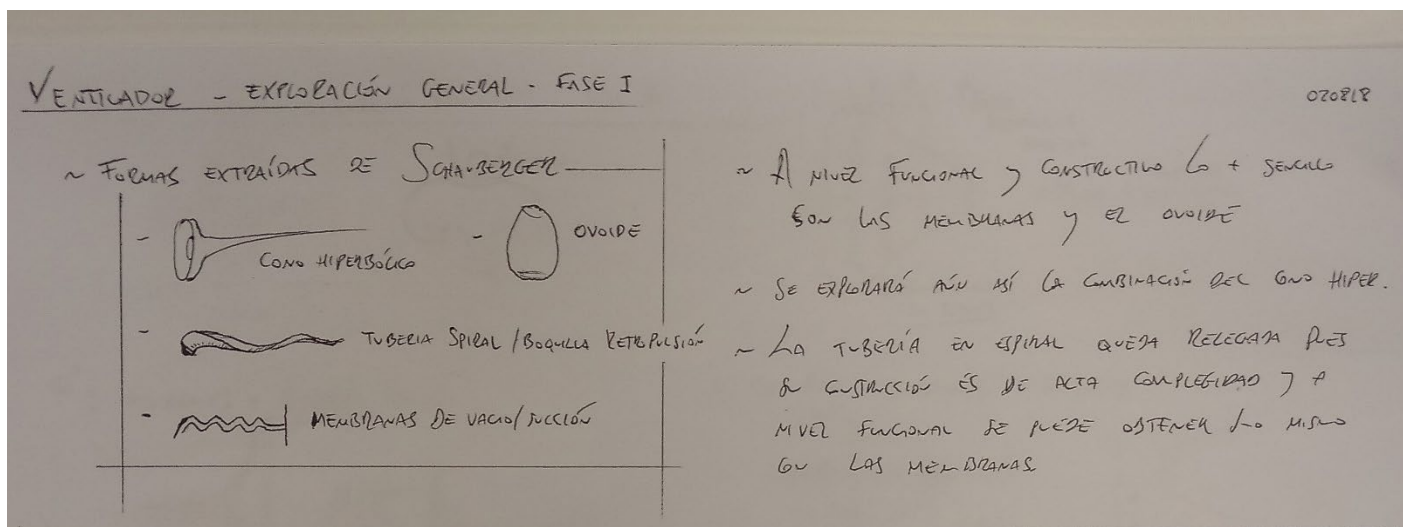 VENTILADOR - EXPLORACIÓN GENERAL - FASE I
020818
~ FORMAS EXTRAÍDAS DE SCHAUBERGER
- CONO HIPERBÓLICO
- OVOIDE
- TUBERIA SPIRAL / BOQUILLA RETROPULSIÓN
- MEMBRANAS DE VACIO/SUCCIÓN
~ A NIVEL FUNCIONAL Y CONSTRUCTIVO LO + SENCILLO
SON LAS MEMBRANAS Y EL OVOIDE
~ SE EXPLORARÁ AÚN ASÍ LA COMBINACIÓN DEL CONO HIPER.
~ LA TUBERÍA EN ESPIRAL QUEDA RELEGADA PUES
SU CONSTRUCCIÓN ES DE ALTA COMPLEGIDAD Y A
NIVEL FUNCIONAL SE PUEDE OBTENER LO MISMO
CON LAS MEMBRANAS.